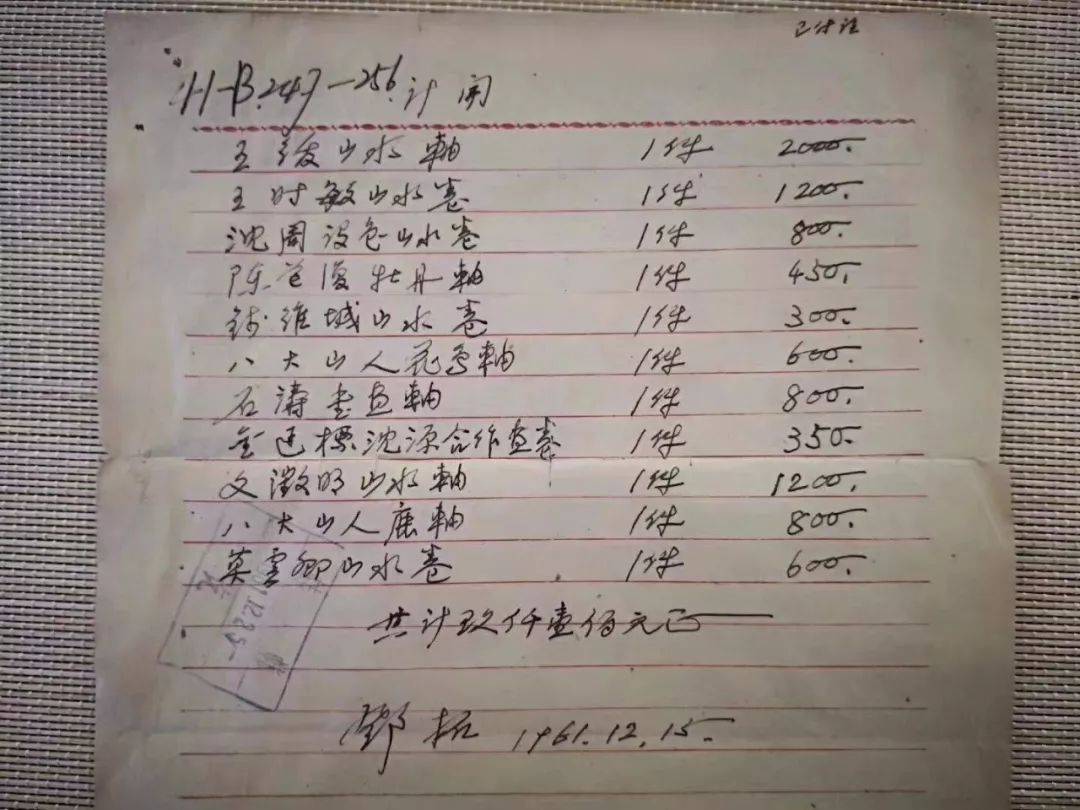 H-B.247—256. 计开
王绂山水軸 1件 2000.
王时敏山水卷 1件 1200.
沈周设色山水卷 1件 800.
陈道復牡丹軸 1件 450.
钱維城山水卷 1件 300.
八大山人花鸟軸 1件 600.
石濤画軸 1件 800.
金廷標沈源合作画卷 1件 350.
文徵明山水軸 1件 1200.
八大山人鹿軸 1件 800.
莫雲卿山水卷 1件 600.
共计玖仟壹佰元正
鄧拓 1961.12.15.